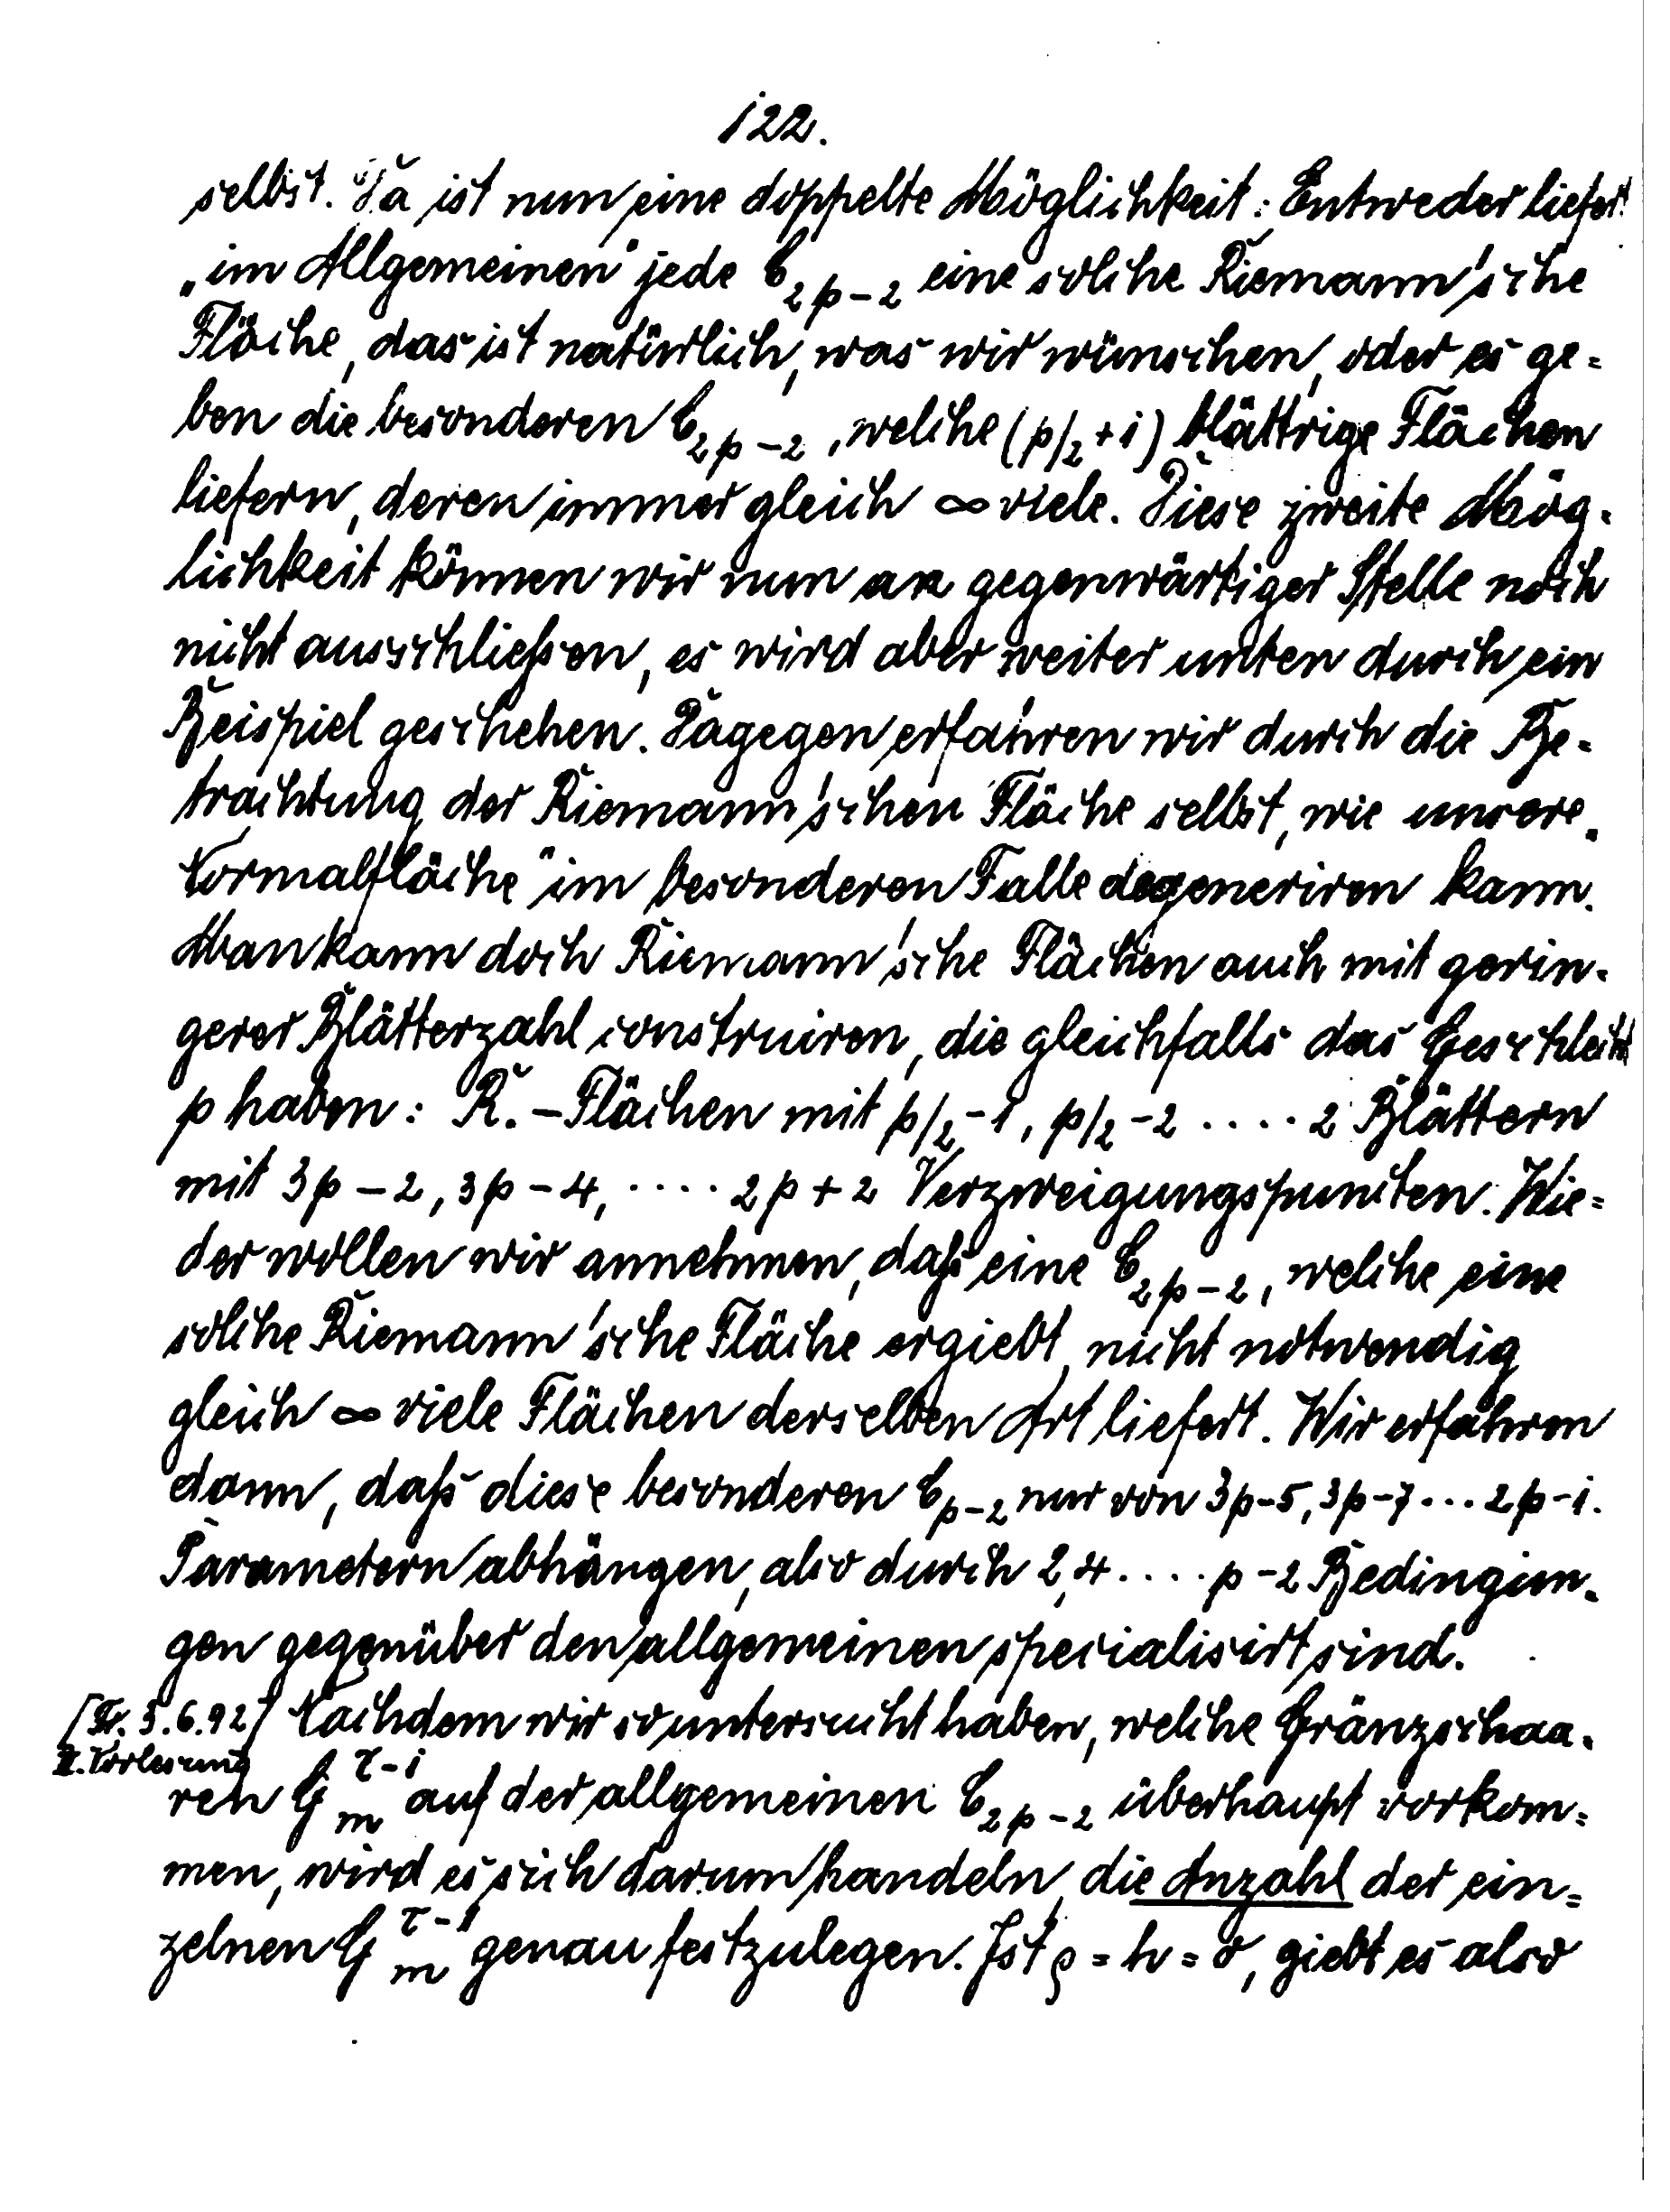 122.
selbst. Da ist nun eine doppelte Möglichkeit: Entweder liefert
„im Allgemeinen" jede C_{2p-2} eine solche Riemann'sche
Fläche, das ist natürlich, was wir wünschen, oder es ge-
ben die besonderen C_{2p-2}, welche (p/2+1) blättrige Flächen
liefern, deren immer gleich ∞ viele. Diese zweite Mög-
lichkeit können wir nun an gegenwärtiger Stelle noch
nicht ausschließen, es wird aber weiter unten durch ein
Beispiel geschehen. Dagegen erfahren wir durch die Be-
trachtung der Riemann'schen Fläche selbst, wie unsere „
Normalfläche" im besonderen Falle degeneriren kann.
Man kann doch Riemann'sche Flächen auch mit gerin-
gerer Blätterzahl construiren, die gleichfalls das Geschlecht
p haben: R.-Flächen mit p/2-1, p/2-2 .... 2 Blättern
mit 3p-2, 3p-4, .... 2p+2 Verzweigungspuncten. Wie-
der wollen wir annehmen, daß eine C_{2p-2}, welche eine
solche Riemann'sche Fläche ergiebt, nicht notwendig
gleich ∞ viele Flächen derselben Art liefert. Wir erfahren
dann, daß diese besonderen C_{p-2} nur von 3p-5, 3p-7 ... 2p-1.
Parametern abhängen, also durch 2, 4 .... p-2 Bedingun-
gen gegenüber den allgemeinen specialisirt sind.
[Fr. 3.6.92] Nachdem wir so untersucht haben, welche Gränzschaa-
II. Vorlesung
ren G_m^{τ-1} auf der allgemeinen C_{2p-2} überhaupt vorkom-
men, wird es sich darum handeln, die Anzahl der ein-
zelnen G_m^{τ-1} genau festzulegen. Ist ρ = h = 0, giebt es also